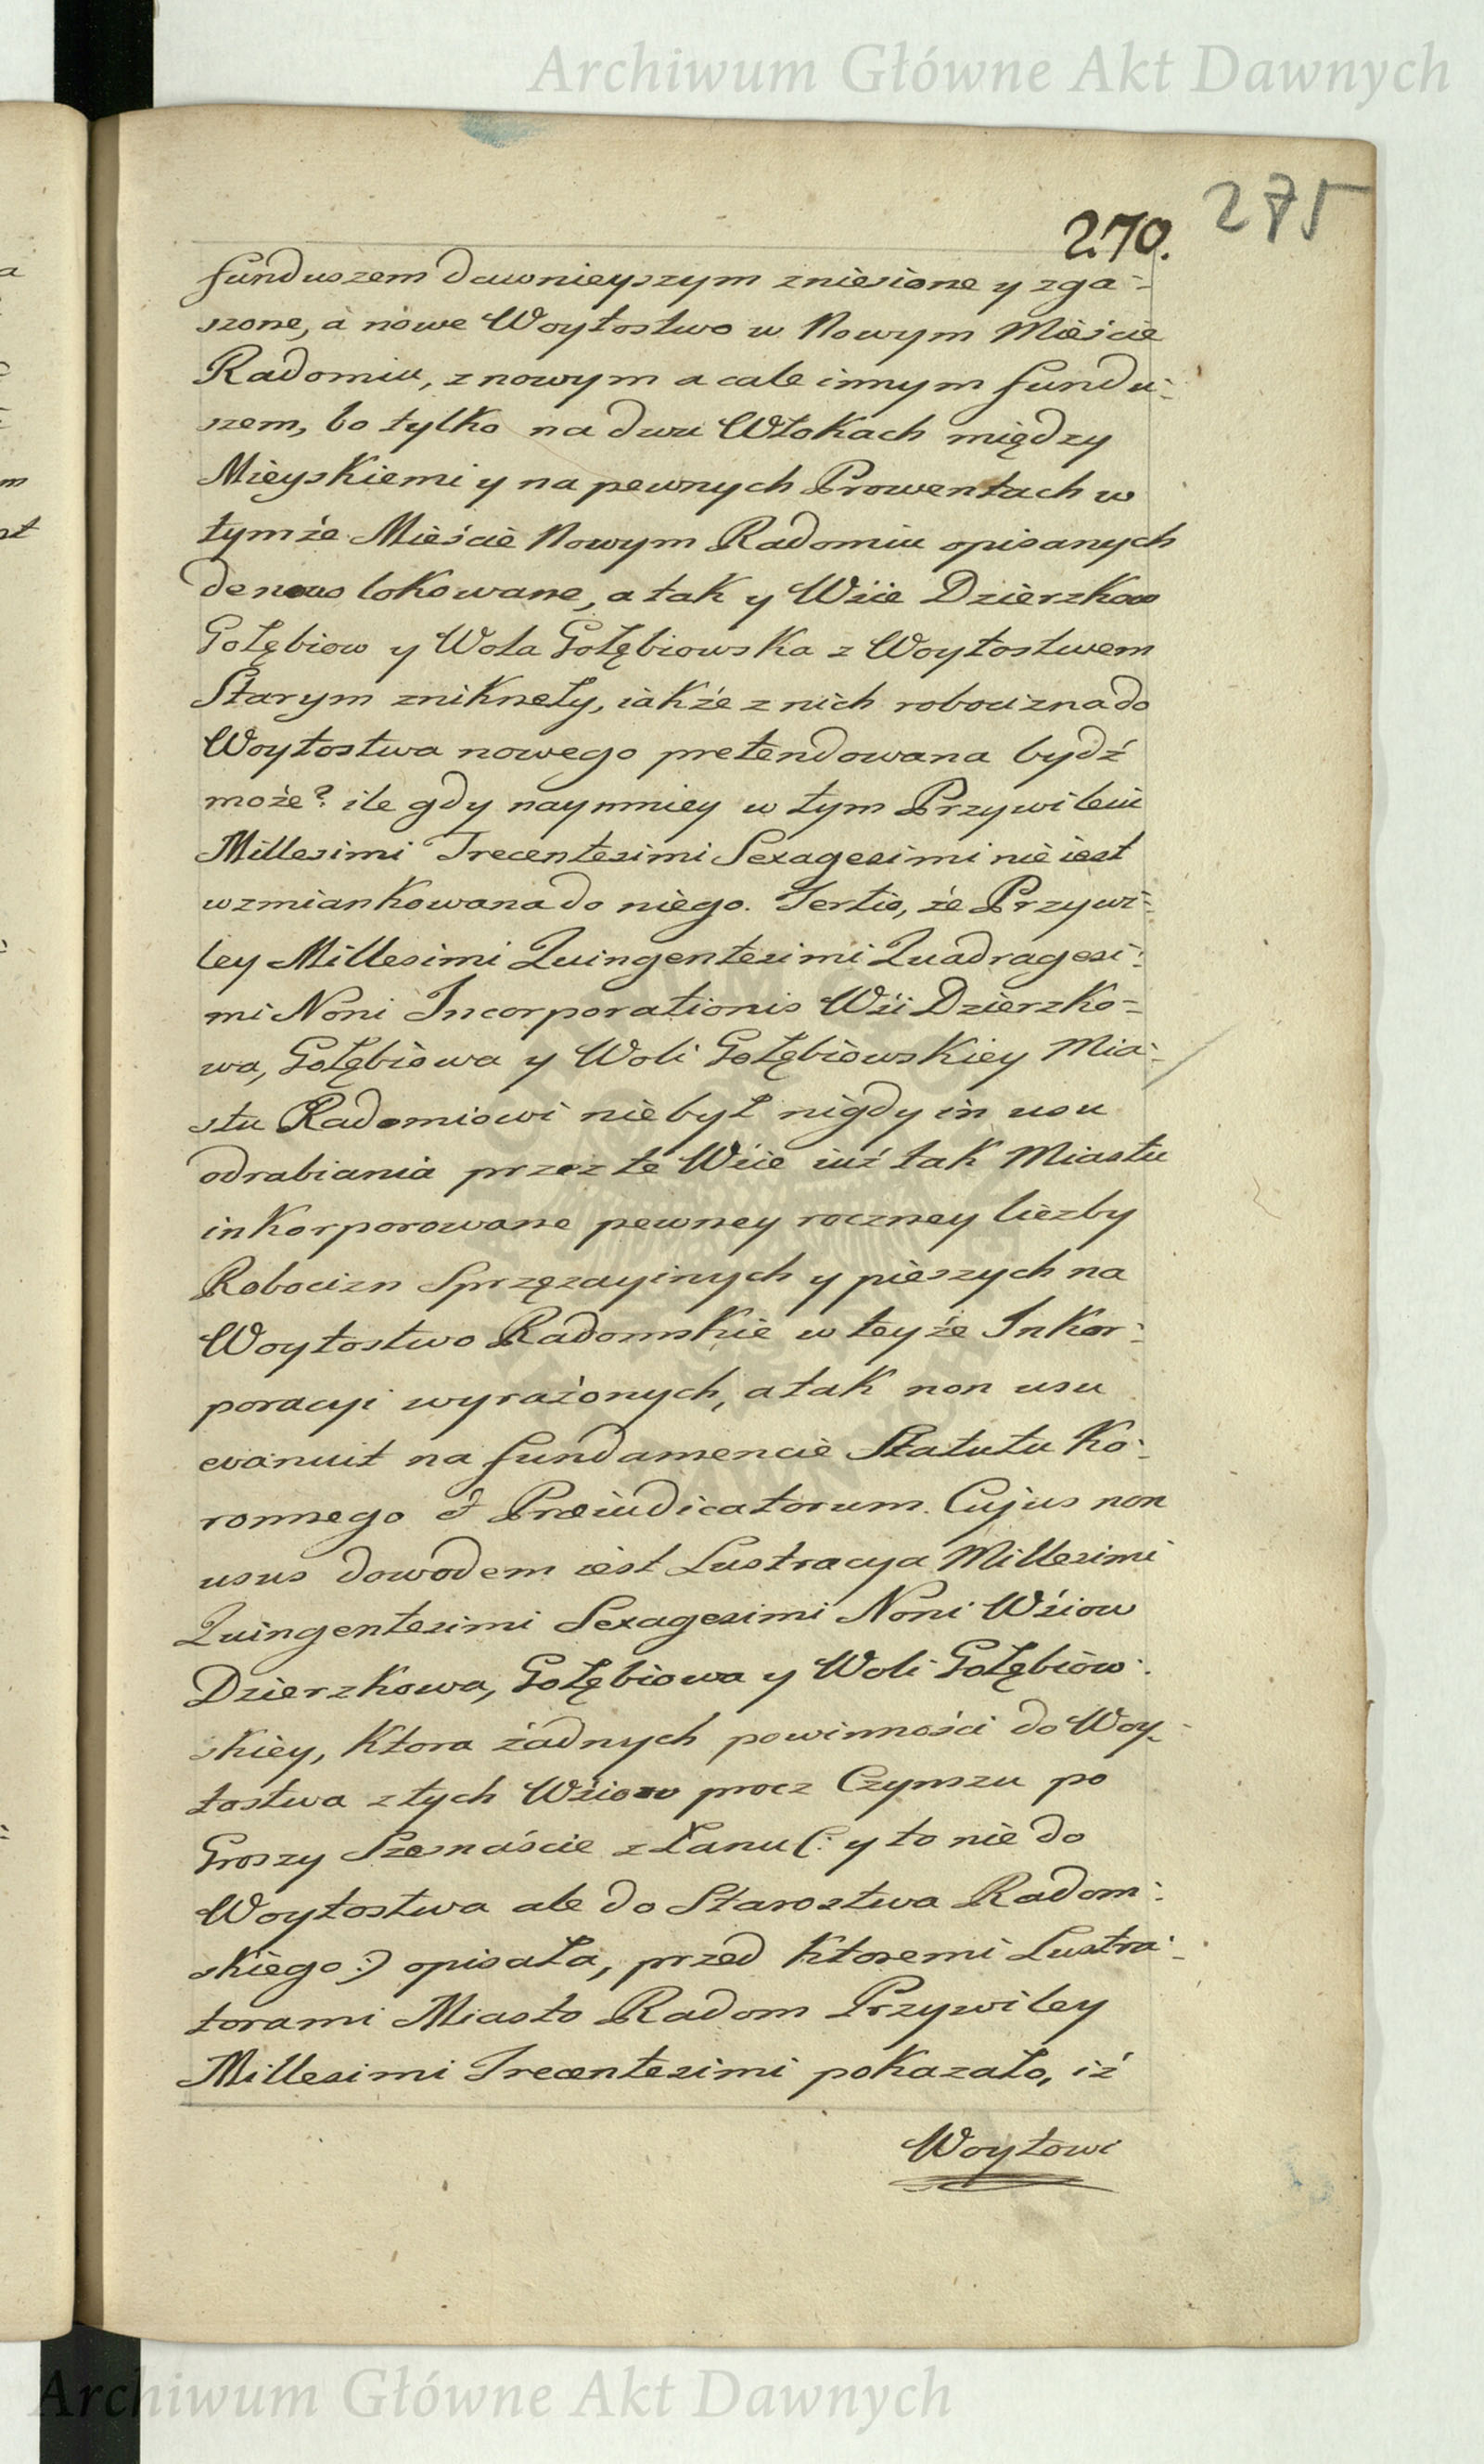 Archiwum Główne Akt Dawnych
275
270.
funduszem dawnieyszym zniesione y zga-
szone, á nowe Woytostwo w Nowym Mieście
Radomiu, z nowym a cale innym fundu-
szem, bo tylko na dwu Włokach między
Mieyskiemi y na pewnych Prowentach w
tymże Mieście Nowym Radomiu opisanych
denovo lokowane, a tak y Wsie Dzierzkow
Gołębiow y Wola Gołębiowska z Woytostwem
Starym znikneły, iakże z nich robocizna do
Woytostwa nowego pretendowana bydź
może? ile gdy naymniey w tym Przywileiu
Millesimi Trecentesimi Sexagesimi nie iest
wzmiankowana do niego. Tertio, że Przywi-
ley Millesimi Quingentesimi Quadragesi-
mi Noni Incorporationis Wsi Dzierzko-
wa, Gołębiowa y Woli Gołębiowskiey Mia-
stu Radomiowi nie był nigdy in usu
odrabiania przez te Wsie iuż tak Miastu
inkorporowane pewney roczney liczby
Robocizn Sprzęzayinych y pieszych na
Woytostwo Radomskie w teyże Inkor-
poracyi wyrażonych, a tak non usu
evanuit na fundamencie Statutu Ko-
ronnego et Præiudicatorum. Cujus non
usus dowodem iest Lustracya Millesimi
Quingentesimi Sexagesimi Noni Wsiow
Dzierzkowa, Gołębiowa y Woli Gołębiow-
skiey, ktora żadnych powinności do Woy-
tostwa z tych Wsiow procz Czynszu po
Groszy Szesnaście z Łanu (: y to nie do
Woytostwa ale do Starostwa Radom-
skiego :) opisała, przed ktoremi Lustra-
torami Miasto Radom Przywiley
Millesimi Trecentesimi pokazało, iż
Woytowi
Archiwum Główne Akt Dawnych